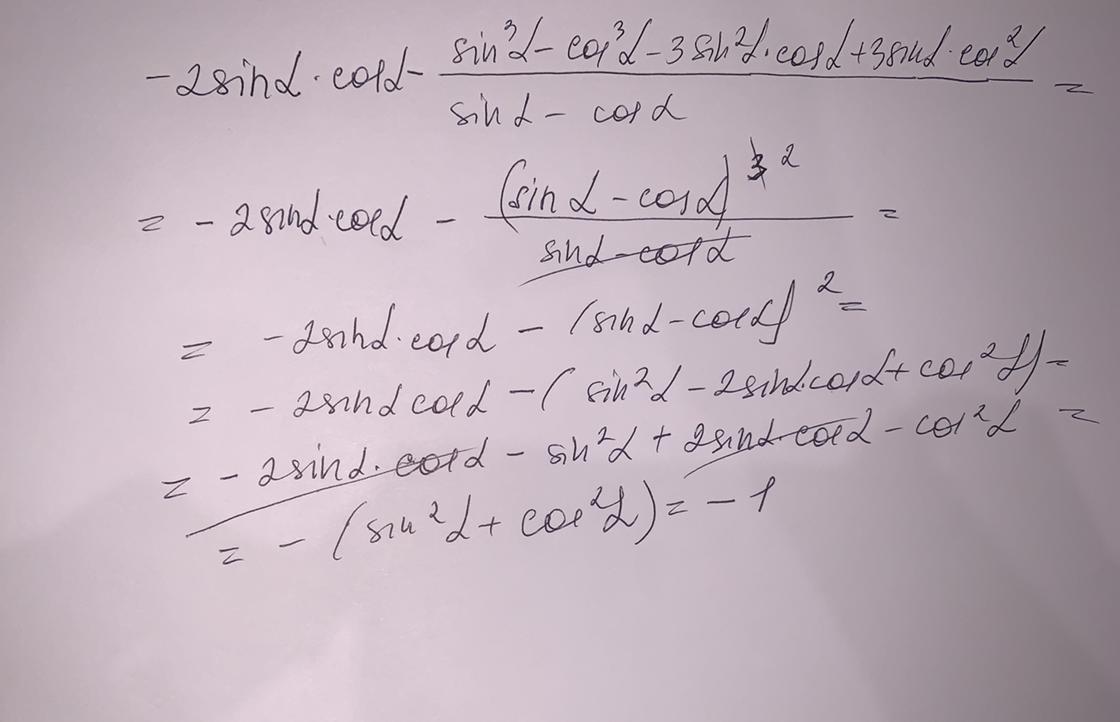 -2sinα · cosα - (sin³α - cos³α - 3sin²α · cosα + 3sinα · cos²α)/(sinα - cosα) =
= -2sinα · cosα - (sinα - cosα)²/(sinα - cosα) =
= -2sinα · cosα - (sinα - cosα)² =
= -2sinα cosα - (sin²α - 2sinα · cosα + cos²α) =
= -2sinα · cosα - sin²α + 2sinα · cosα - cos²α =
= -(sin²α + cos²α) = -1